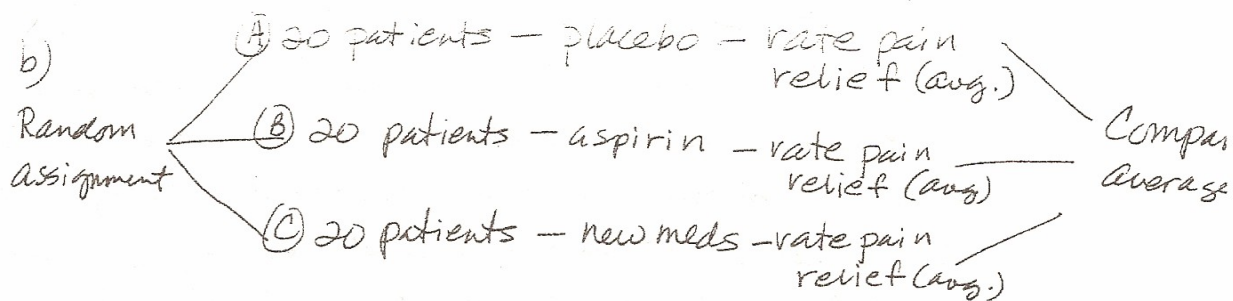 b)
Random
assignment
(A) 20 patients – placebo – rate pain
relief (avg.)
(B) 20 patients – aspirin – rate pain
relief (avg)
(C) 20 patients – new meds – rate pain
relief (avg.)
Compar
average